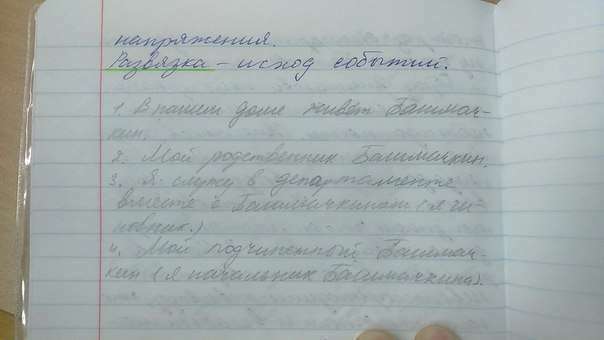 напряжения.
Развязка - исход событий.
1. В нашем доме живёт Башмач-
кин.
2. Мой родственник Башмачкин.
3. Я служу в департаменте
вместе с Башмачкиным (я чи-
новник.)
4. Мой подчиненный Башмач-
кин (я начальник Башмачкина).